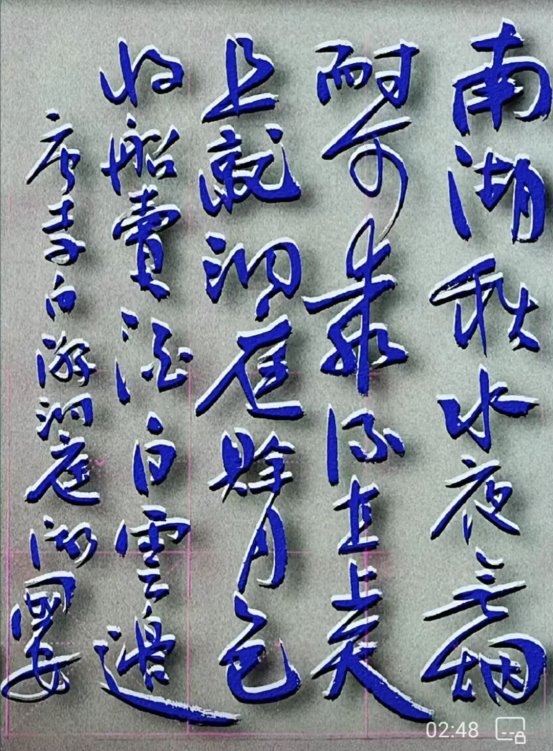 南湖秋水夜无烟
耐可乘流直上天
且就洞庭賒月色
将船賣酒白雲邊
唐李白游洞庭湖
02:48